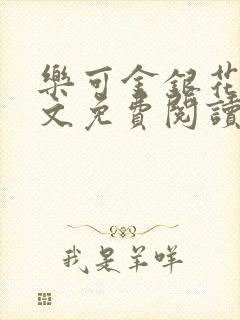 樂可金銀花
文免費閱讀
我是羊咩